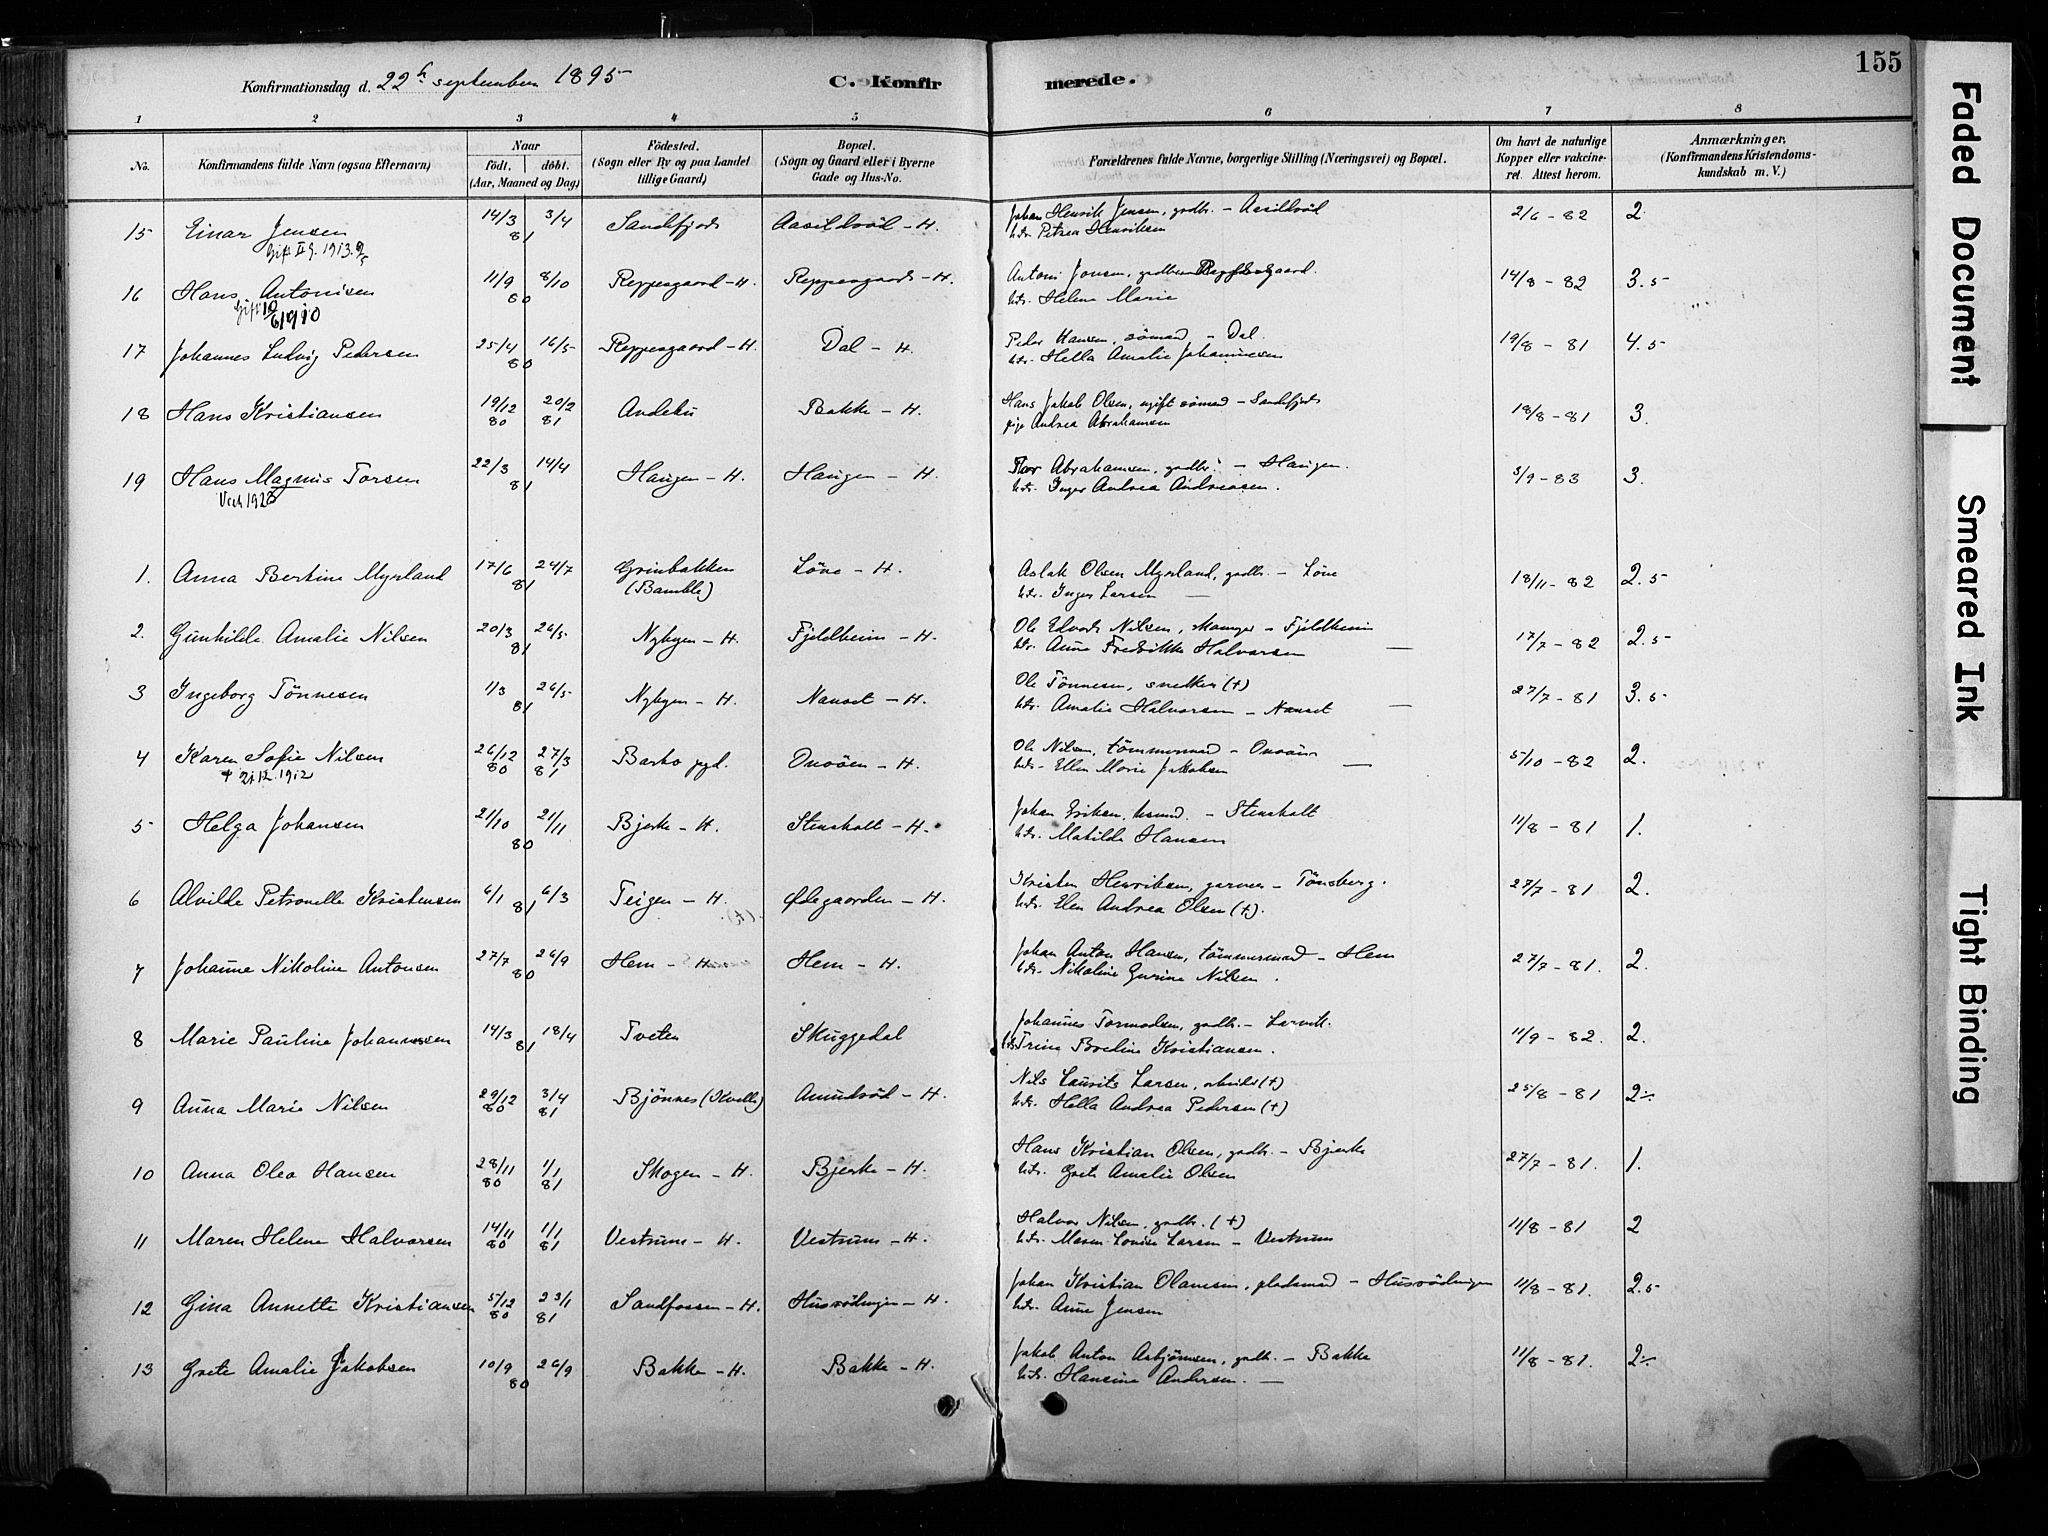 155
Konfirmationsdag d. 22de september 1895
C. Konfirmerede.
1 2 3 4 5 6 7 8
No. Konfirmandens fulde Navn (ogsaa Efternavn) Naar født. døbt. (Aar, Maaned og Dag) Fødested. (Sogn eller By og paa Landet tillige Gaard) Bopæl. (Sogn og Gaard eller i Byerne Gade og Hus-No. Forældrenes fulde Navne, borgerlige Stilling (Næringsvei) og Bopæl. Om havt de naturlige Kopper eller vakcineret. Attest herom. Anmærkninger, (Konfirmandens Kristendomskundskab m. V.)
15 Einar Jensen 14/3 3/4 81 Sandefjord Aasildrød - H. Johan Henrik Jensen, gadbr. - Aasildrød 2/6 - 82 2
Gift II G. 1913
htr. Petrea Henriksen
16 Hans Antonisen 11/9 8/10 80 Reppesgaard - H. Reppesgaard - H. Antoni Jonsen, gadbr. Reppesgaard. 14/8 - 82 3.5
Gift 10/6 1910
htr. Helene Marie
17 Johannes Ludvig Pedersen 25/4 16/5 80 Reppesgaard - H. Dal - H. Peder Hansen, sömand - Dal. 19/8 - 81 4.5
htr. Hella Amalie Johannesen
18 Hans Kristiansen 19/12 80 20/2 81 Andebu Bakke - H. Hans Jakob Olsen, ugift sömand - Sandefjord 18/8 - 81 3.
pige Andrea Abrahamsen
19 Hans Magnus Torsen 22/3 14/4 81 Haugen - H. Haugen - H. Thor Abrahamsen, gadbr. - Haugen. 3/9 - 83 3.
htr. Inger Andrea Andreasen.
1. Anna Bertine Myrland 17/6 24/7 81 Grinbakken (Bamble) Löve - H. Aslak Olsen Myrland, gadbr. - Löve 18/11 - 82 2.5
htr. Inger Larsen —
2. Gunhilde Amalie Nilsen 20/3 26/5 81 Nybyen - H. Fjeldheim - H. Ole Edvard Nilsen, - Fjeldheim 17/7 - 82 2.5
htr. Anne Fredrikke Halvorsen —
3 Ingeborg Tönnesen 1/3 26/5 81 Nybyen - H. Nanset - H. Ole Tönnesen, snekker (+) 27/7 - 81 3.5
htr. Amalie Halvorsen - Nanset —
4 Karen Sofie Nilsen 26/12 80 27/3 81 Barbo pgd. Onsöen - H. Ole Nilsen, tömmermand - Onsöen 5/10 - 82 2.
+ 21.12.1912
htr. Ellen Marie Jakobsen —
5 Helga Johansen 21/10 21/11 80 Bjerke - H. Stensholt - H. Johan Eriksen, husmd. - Stensholt 11/8 - 81 1.
htr. Matilde Hansen
6 Alvilde Petronelle Kristensen 6/1 6/3 81 Teigen - H. Ødegaarden - H. Kristen Henriksen, garver - Tönsberg. 27/7 - 81 2.
htr. Elen Andrea Olsen (+).
7 Johanne Nikoline Antonsen 27/7 26/9 80 Hem - H. Hem - H. Johan Anton Hansen, tömmermand - Hem 27/7 - 81. 2.
htr. Nikoline Gurine Nilsen.
8 Marie Pauline Johannesen 14/3 18/4 81 Tveten Skuggedal Johannes Tormodsen, gadbr. - Larvik. 11/9 - 82. 2.
htr. Trine Breline Kristiansen.
9 Anna Marie Nilsen 29/12 80 3/4 81 Bjönnes (Kvelle) Amundröd - H. Nils Laurits Larsen, arbeid. (+) 25/8 - 81 2÷
htr. Hella Andrea Pedersen (+)
10 Anna Olea Hansen 28/11 80 1/1 81 Skogen - H. Bjerke - H. Hans Kristian Olsen, gadbr. - Bjerke 27/7 - 81. 1.
htr. Grete Amalie Olsen
11 Maren Helene Halvorsen 14/11 80 1/1 81 Vestrum - H. Vestrum - H. Halvor Nilsen, gadbr. (+) 11/8 - 81 2
htr. Maren Lovise Larsen - Vestrum
12 Gina Annette Kristiansen 5/12 80 23/1 81 Sandfossen - H. Husrödningen - H. Johan Kristian Olansen, pladsmand - Husrödningen 11/8 - 81. 2.5
htr. Anne Jensen
13 Grete Amalie Jakobsen 10/9 26/9 80 Bakke - H. Bakke - H. Jakob Anton Asbjörnsen, gadbr. - Bakke 11/8 - 81. 2÷
htr. Hansine Andersen. —
Faded Document
Smeared Ink
Tight Binding